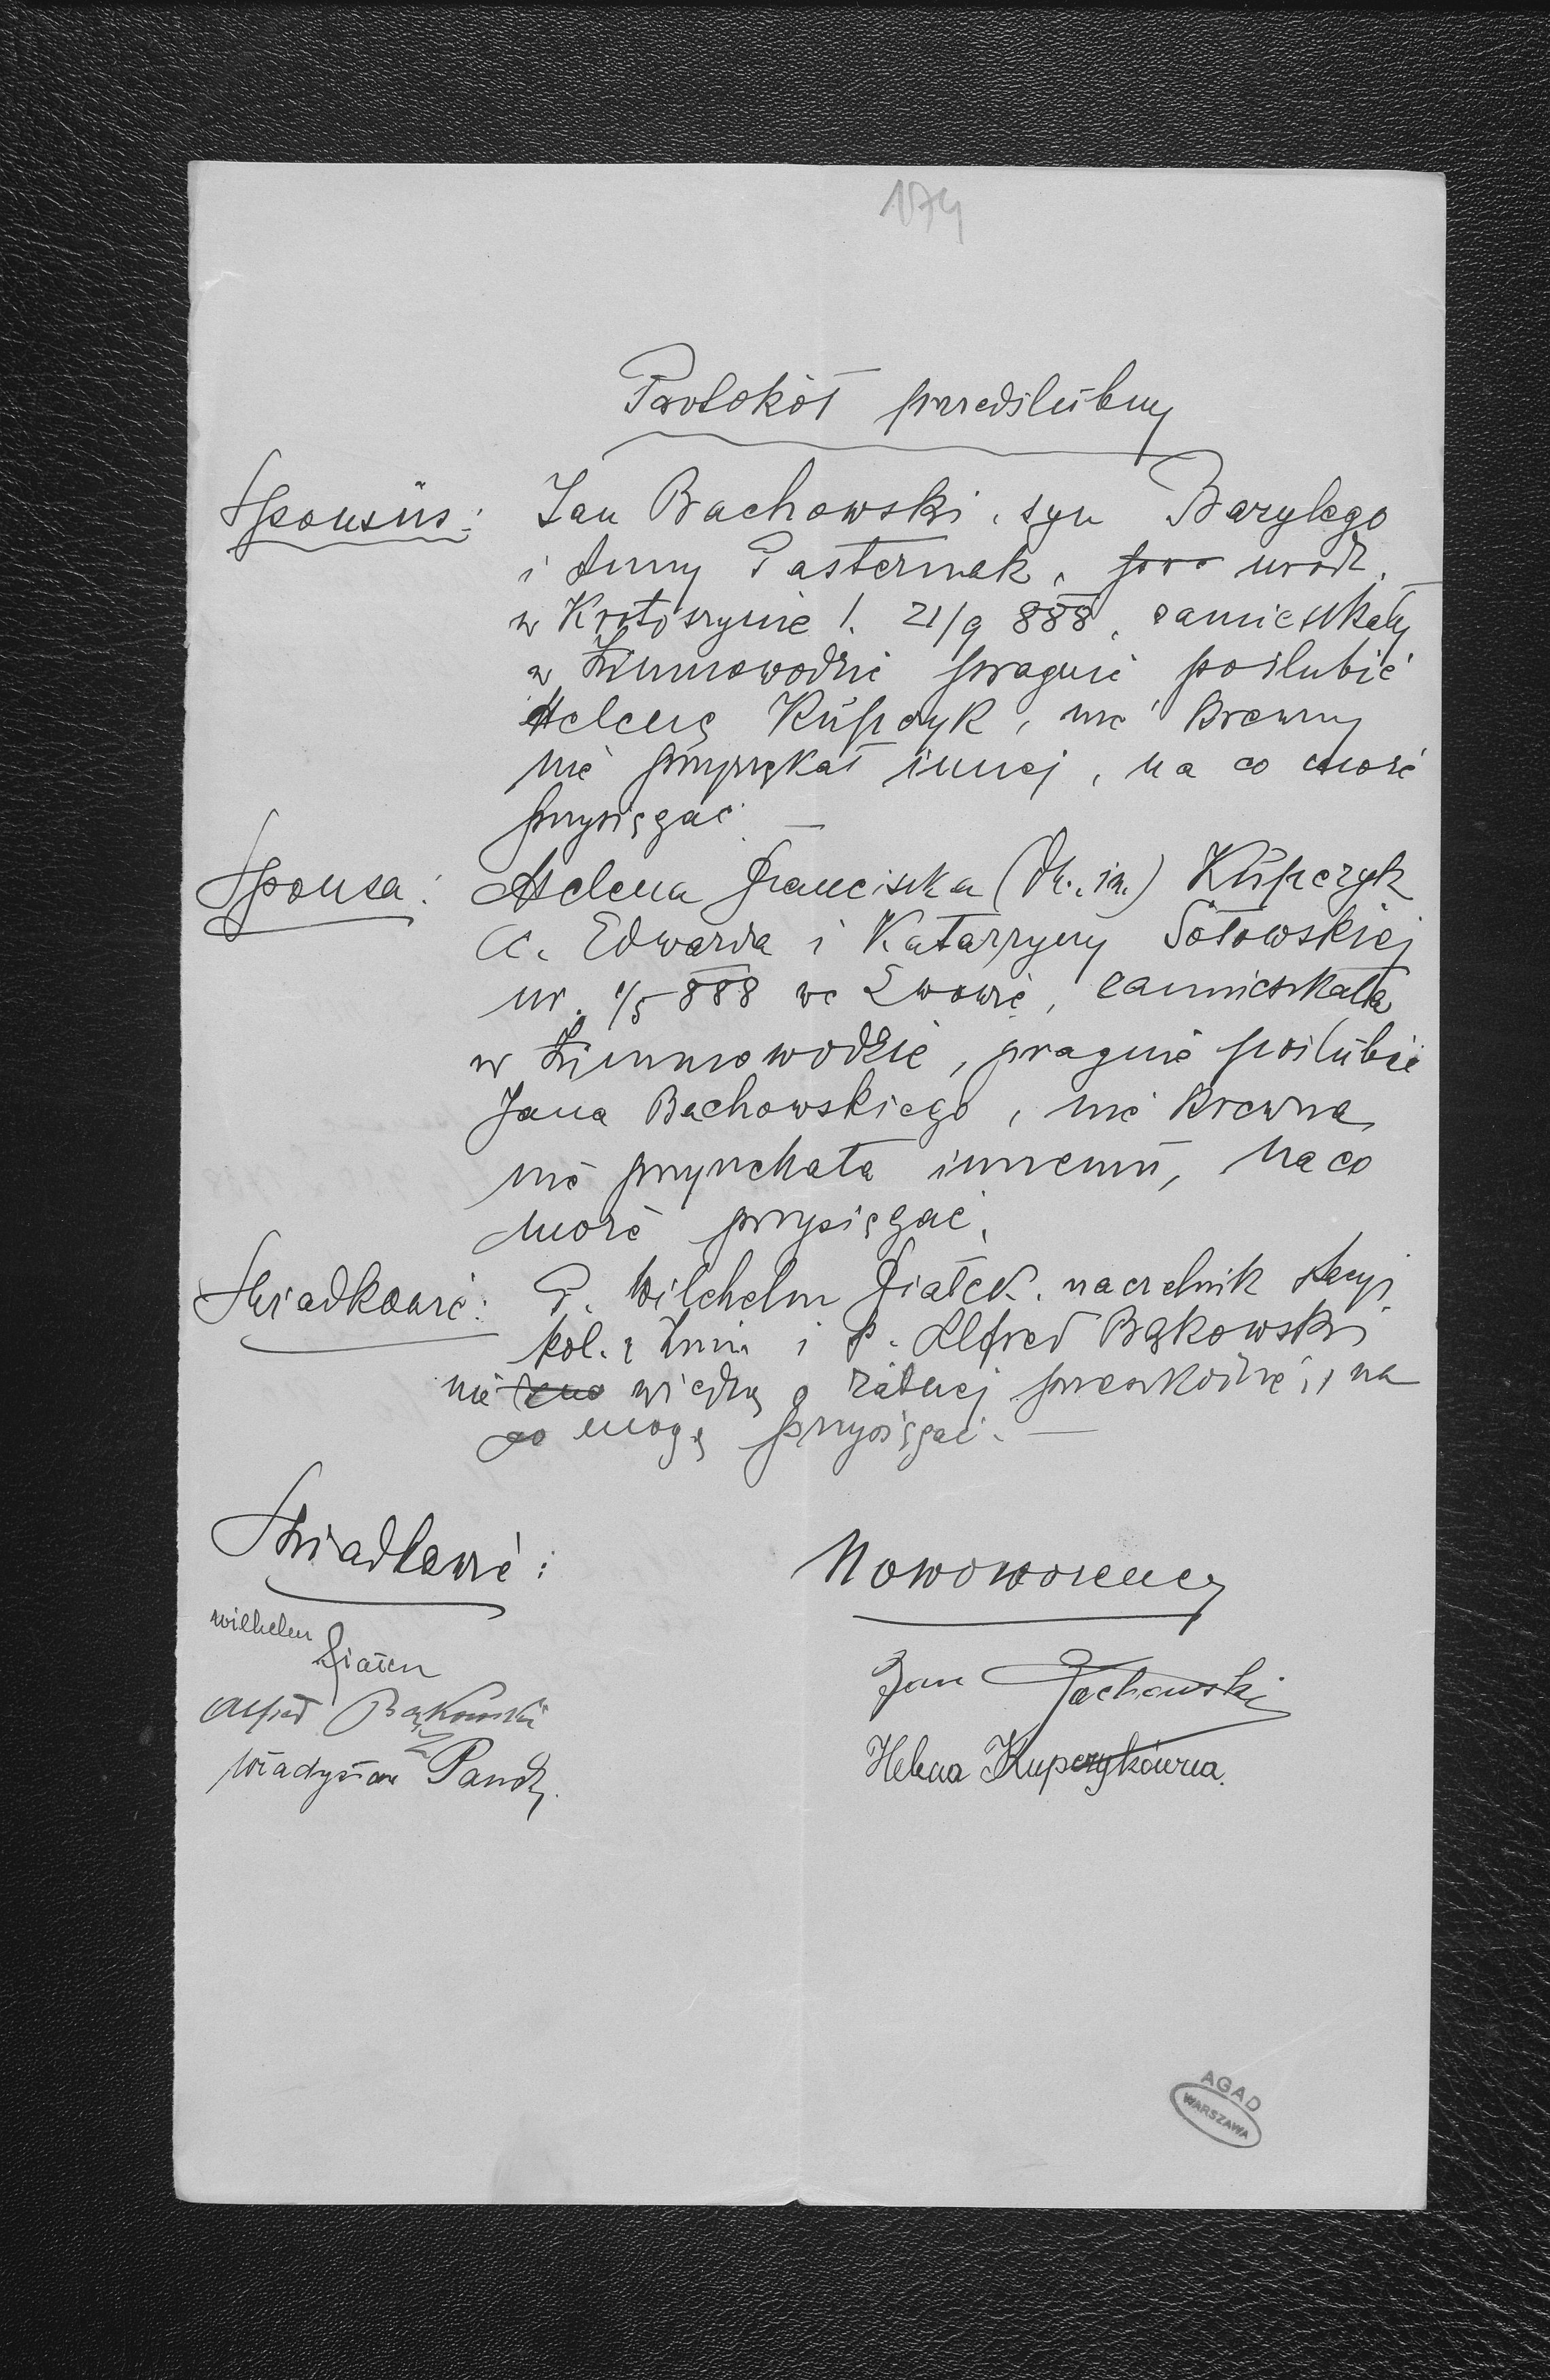 174
Protokół przedślubny
Sponsus: Jan Bachowski, syn Bazylego
i Anny Pasternak, urodz.
w Krotoszynie 1. 21/9 888, zamieszkały
w Zimnowodzie pragnie poślubić
Helenę Kupczyk, nie krewny
nie przyrzekał innej, na co może
przysięgać. —
Sponsa: Helena Franciszka (dw. im.) Kupczyk
c. Edwarda i Katarzyny Sołowskiej
ur. 1/5 888 we Lwowie, zamieszkała
w Zimnowodzie, pragnie poślubić
Jana Bachowskiego, nie krewna
nie przyrzekała innemu, na co
może przysięgać.
Świadkowie: P. Wilhelm Fiałek, naczelnik stacyi
kol. z i P. Alfred Bąkowski
nie wiedzą o żadnej przeszkodzie, i na
co mogą przysięgać. —
Świadkowie: Nowożeńcy
Wilhelm Fiałek Jan Bachowski
Alfred Bąkowski Helena Kupczykówna.
Władysław
AGAD
WARSZAWA